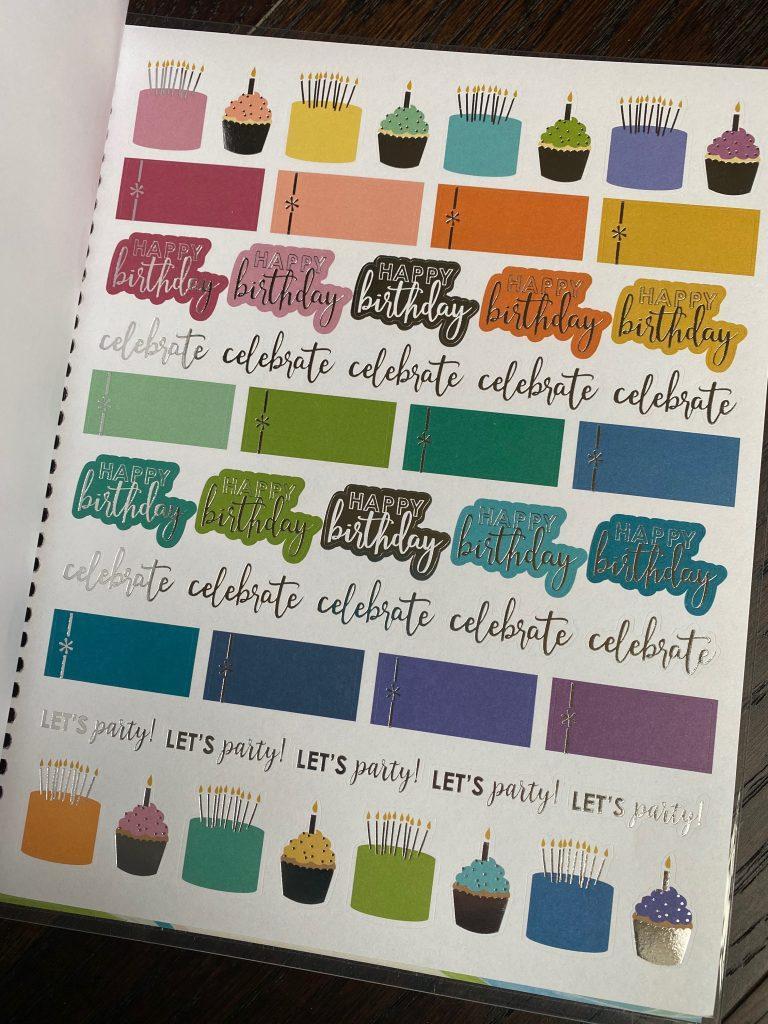 HAPPY birthday HAPPY birthday HAPPY birthday HAPPY birthday HAPPY birthday
celebrate celebrate celebrate celebrate celebrate
HAPPY birthday HAPPY birthday HAPPY birthday HAPPY birthday HAPPY birthday
celebrate celebrate celebrate celebrate celebrate
LET'S party! LET'S party! LET'S party! LET'S party! LET'S party!